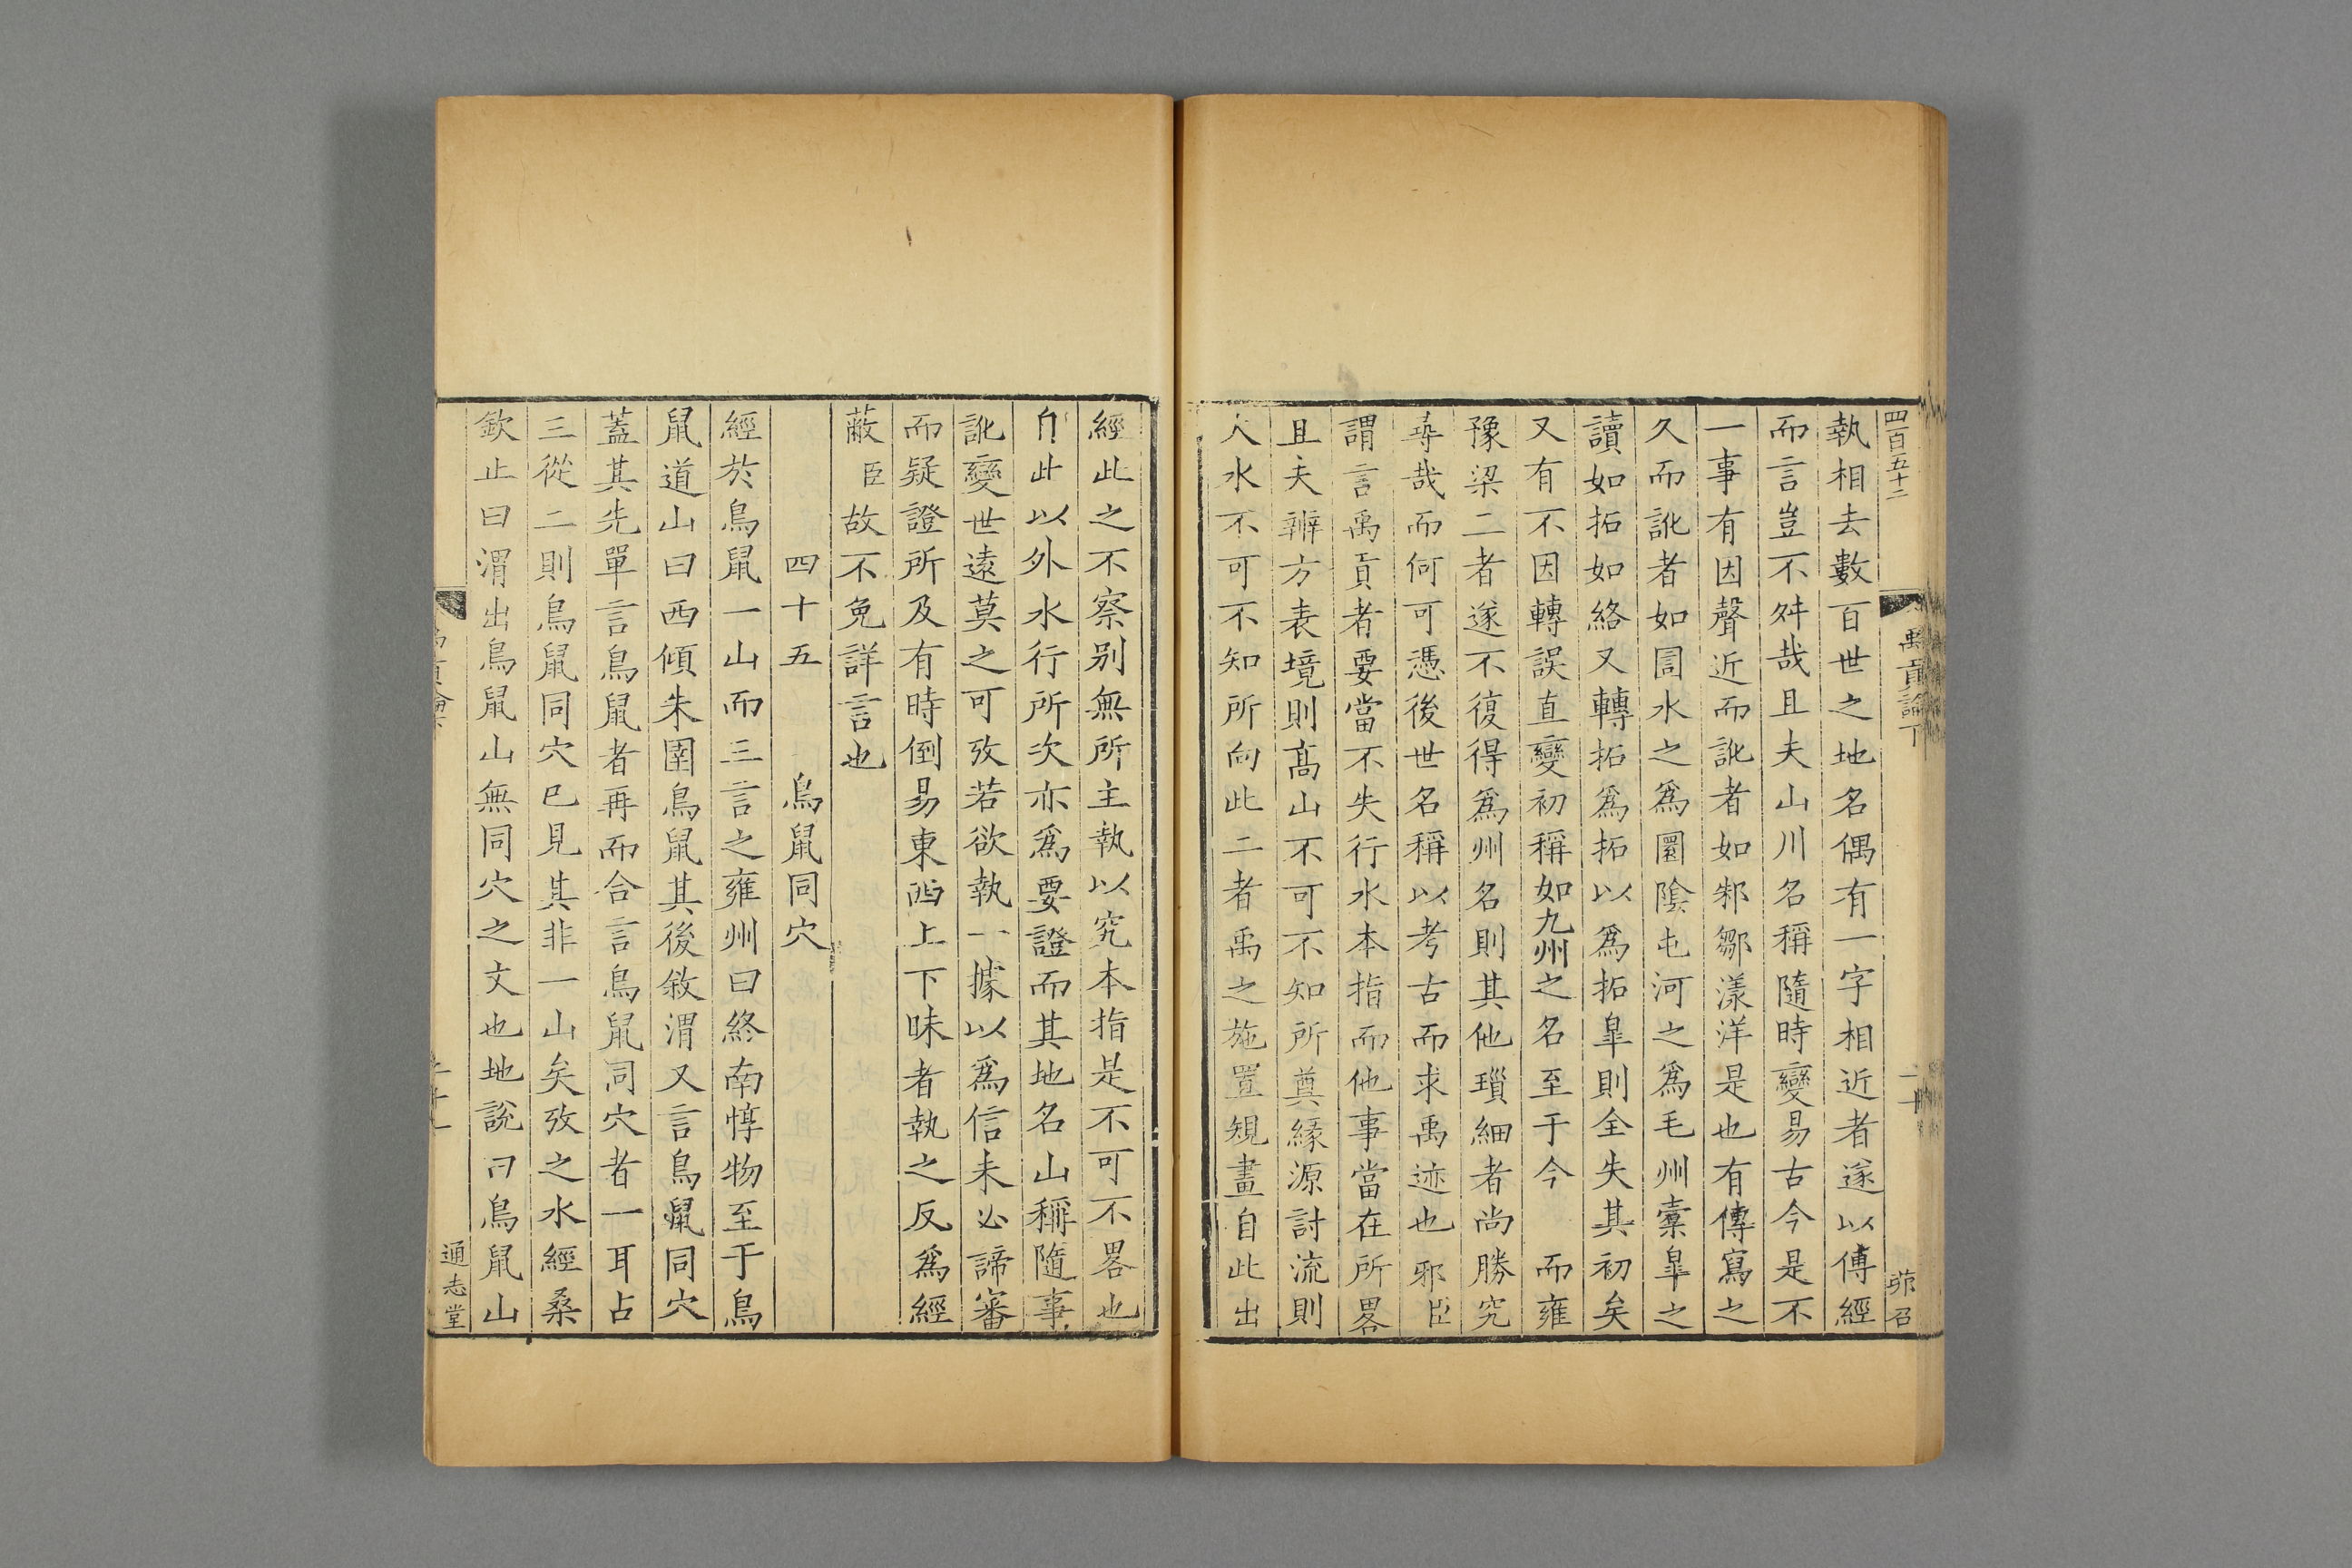 四百五十二
禹貢論下
二十
茆召
執相去數百世之地名偶有一字相近者遂以傅經
而言豈不舛哉且夫山川名稱隨時變易古今是不
一事有因聲近而訛者如邾鄒漾洋是也有傳寫之
久而訛者如圁水之爲圜陰屯河之爲毛州槖皐之
讀如拓如絡又轉拓爲拓以爲拓皐則全失其初矣
又有不因轉誤直變初稱如九州之名至于今　而雍
豫梁二者遂不復得爲州名則其他瑣細者尚勝究
尋哉而何可憑後世名稱以考古而求禹迹也邪臣
謂言禹貢者要當不失行水本指而他事當在所畧
且夫辨方表境則髙山不可不知所奠緣源討流則
人水不可不知所向此二者禹之施置規畫自此出
經此之不察别無所主執以究本指是不可不畧也
自此以外水行所次亦爲要證而其地名山稱隨事
訛變世遠莫之可攷若欲執一據以爲信未必諦審
而疑證所及有時倒易東西上下昧者執之反爲經
蔽臣故不免詳言也
四十五　　鳥鼠同穴
經於鳥鼠一山而三言之雍州曰終南惇物至于鳥
鼠道山曰西傾朱圉鳥鼠其後敘渭又言鳥鼠同穴
蓋其先單言鳥鼠者再而合言鳥鼠同穴者一耳占
三從二則鳥鼠同穴巳見其非一山矣攷之水經桑
欽止曰渭出鳥鼠山無同穴之文也地說曰鳥鼠山
通志堂